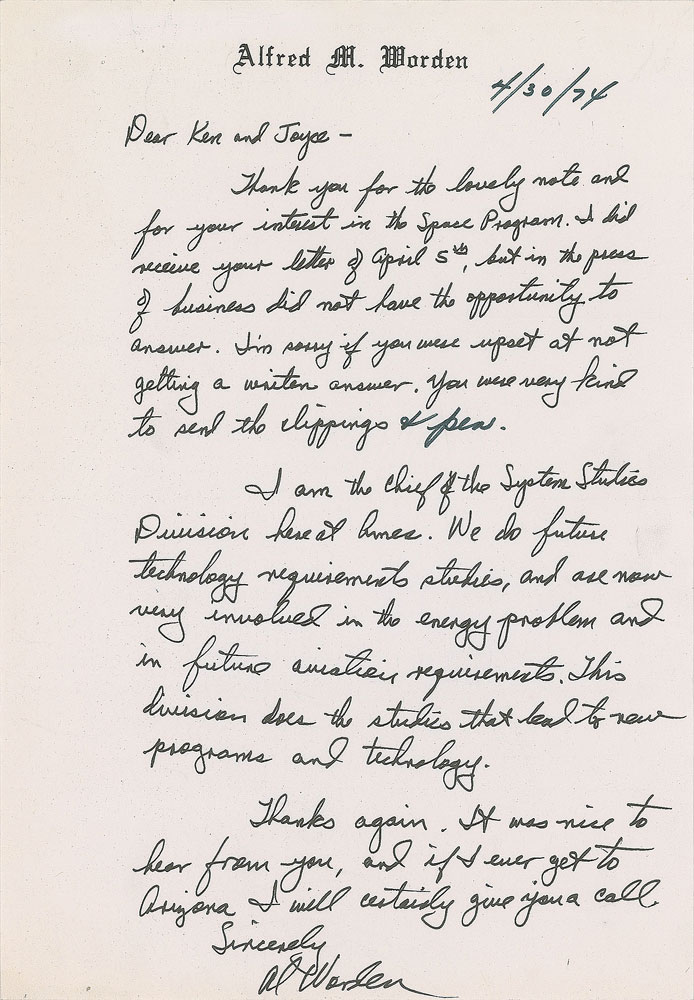 Alfred M. Worden
4/30/74
Dear Ken and Joyce –
Thank you for the lovely note and
for your interest in the Space Program. I did
receive your letter of April 5th, but in the press
of business did not have the opportunity to
answer. I'm sorry if you were upset at not
getting a written answer. You were very kind
to send the clippings & pen.
I am the Chief of the System Studies
Division here at Ames. We do future
technology requirements studies, and are now
very involved in the energy problem and
in future aviation requirements. This
division does the studies that lead to new
programs and technology.
Thanks again. It was nice to
hear from you, and if I ever get to
Arizona I will certainly give you a call.
Sincerely
Al Worden